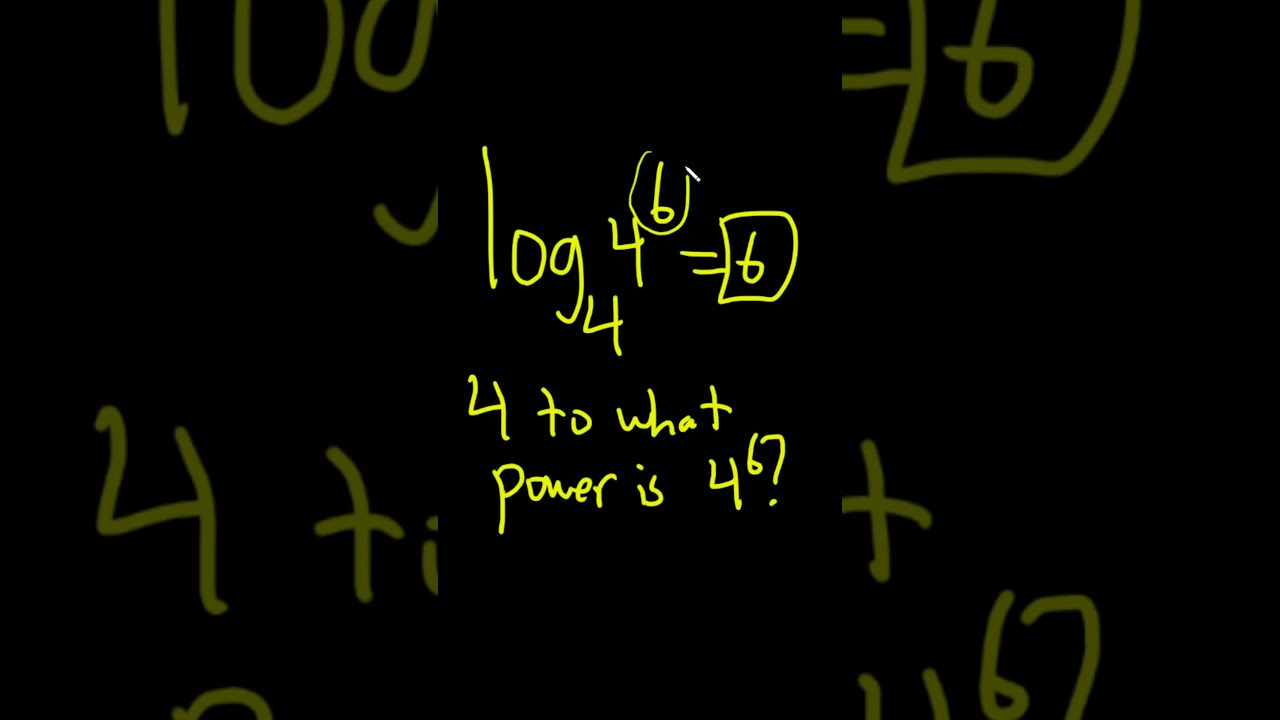 log₄ 4⁶ = 6
4 to what
power is 4⁶?